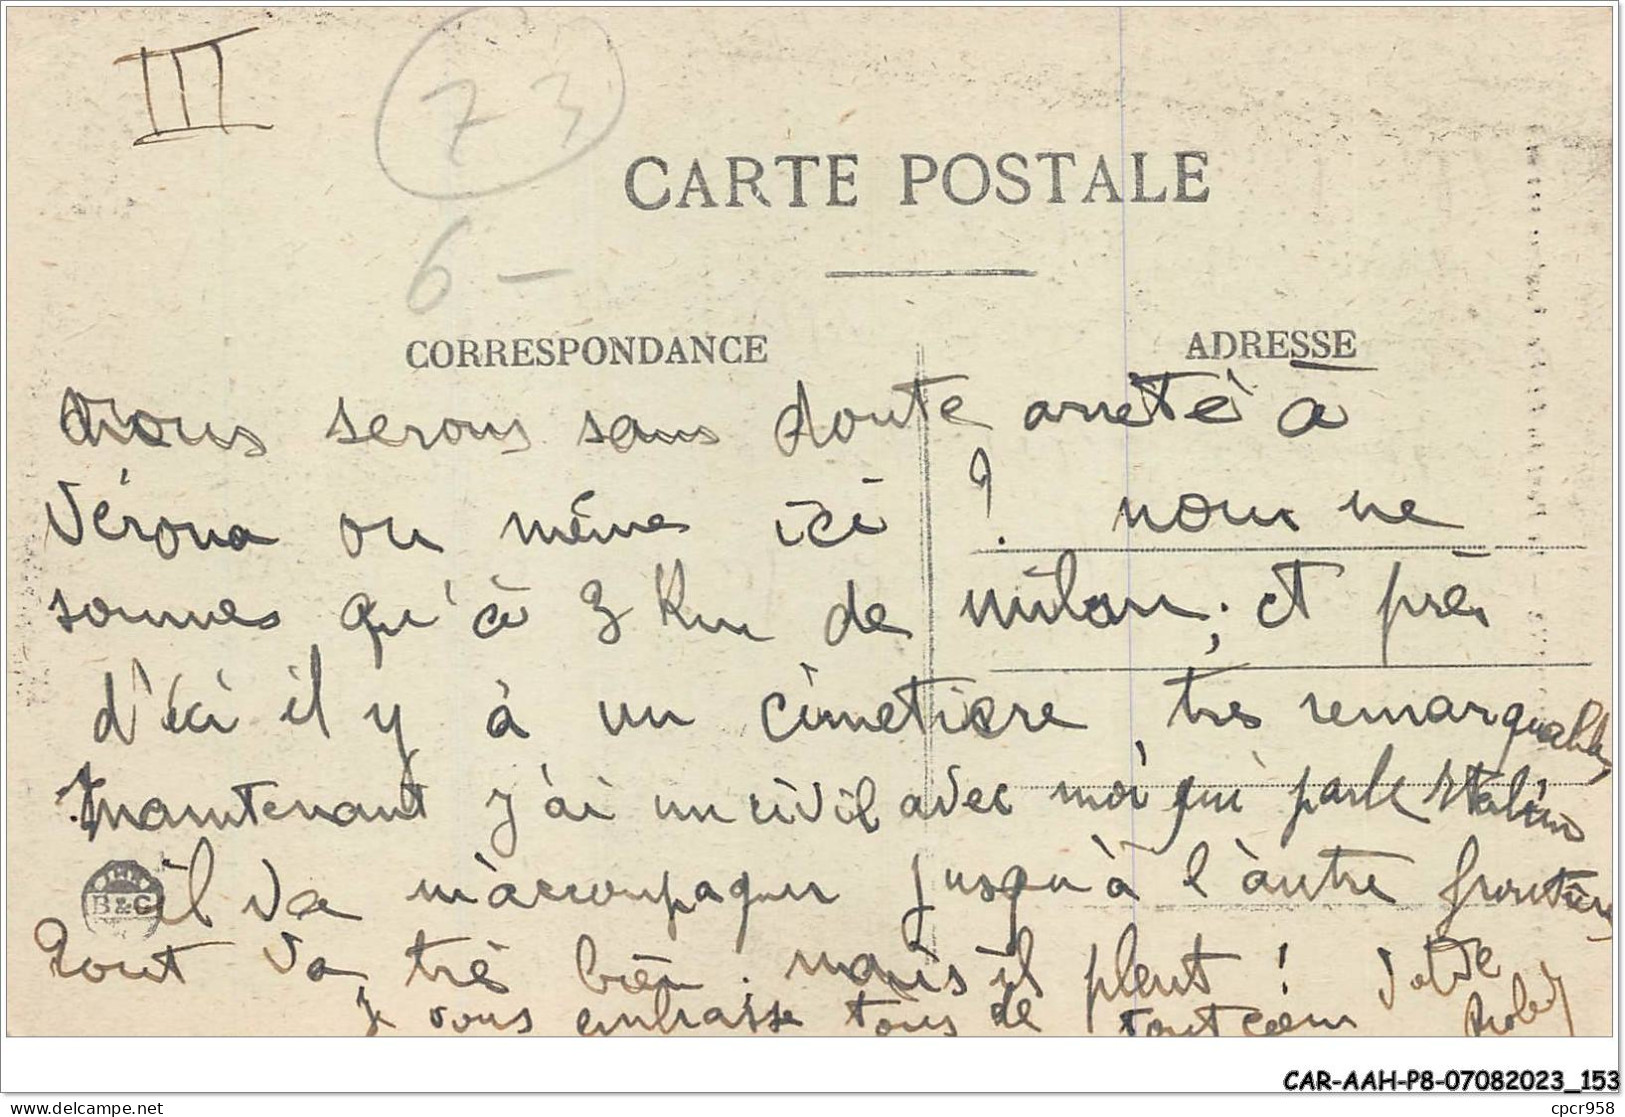 III
73
CARTE POSTALE
6 —
CORRESPONDANCE
ADRESSE
Nous serons sans doute arreté à
Vérona ou même ici ? nous ne
sommes qu'à 3 Km de milan ; et près
d'ici il y à un cimetiere très remarquable
maintenant j'ai un civil avec moi qui parle Italien
il va m'accompagner jusqu'à l'autre frontière
B&G
Tout va très bien . mais il pleut ! Votre
Je vous embrasse tous de tout cœur
CAR-AAH-P8-07082023_153
delcampe.net
cpcr958